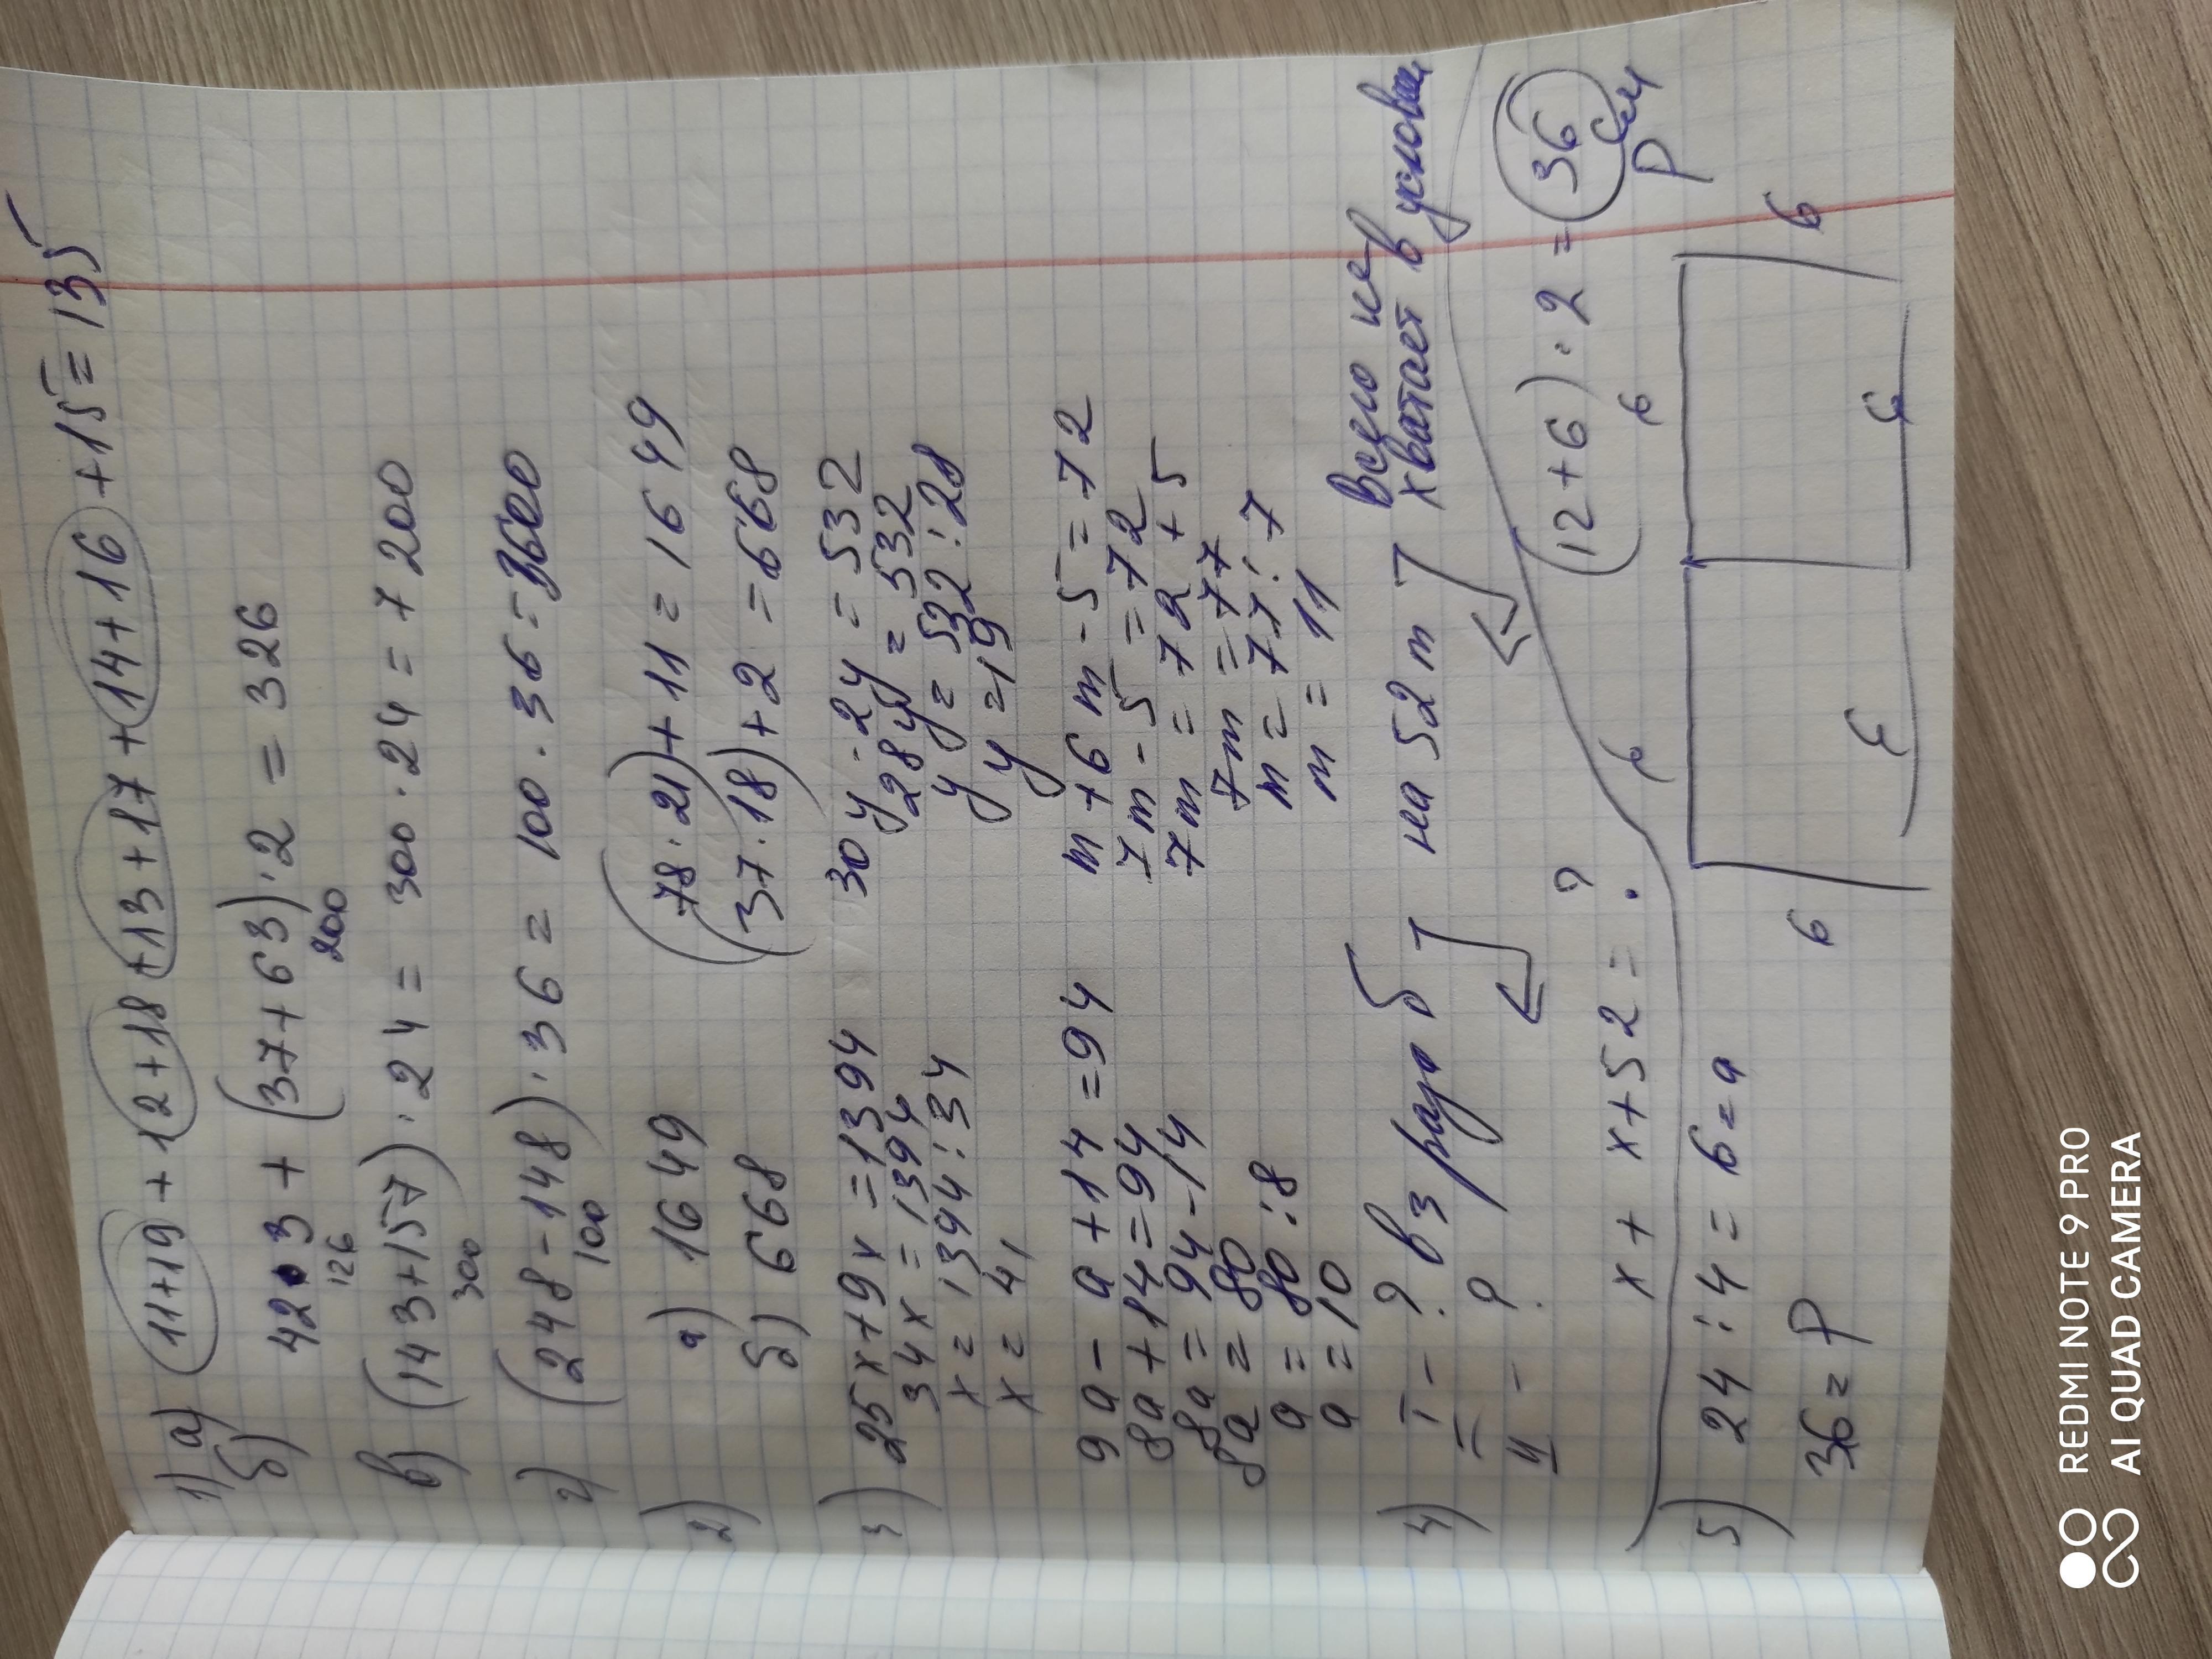 1) а) 11+19 + 12+18 +13+17 + 14+16 +15=135
б) 42•3 + (37+63)·2 = 326
126 200
в) (143+157)·24 = 300·24 = 7200
300
г) (248-148)·36 = 100·36=3600
100
2) а) 1649 (78·21)+11 = 1649
б) 668 (37·18)+2 = 668
3) 25x+9x=1394 30y-2y = 532
34x=1394 28y = 532
x=1394:34 y = 532:28
x=41 y=19
9a-a+14=94 m+6m-5=72
8a+14=94 7m-5=72
8a=94-14 7m=72+5
8a=80 7m=77
a=80:8 m=77:7
a=10 m=11
4) I - ? в 3 раза б на 52 т Всего не
II - ? хватает в условии
x + x+52 = ?
5) 24:4=6=a (12+6)·2=36 см
36=P P
6 6
6 6
6 6